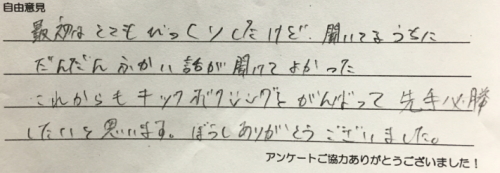 自由意見
最初はとてもびっくりしたけど、聞いてるうちに
だんだんふかい話が聞けてよかった
これからもキックボクシングをがんばって先手必勝
したいと思います。ぼうしありがとうございました。
アンケートご協力ありがとうございました!